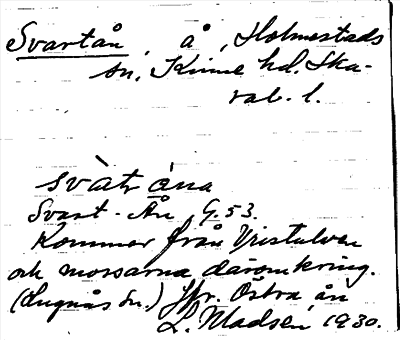 Svartån, å, Holmestads
sn, Kinne hd. Ska-
rab. l.
svàtṛ ána
Svart-Ån, G. 53.
Kommer från
och mossarna däromkring.
(Lugnås sn.) Jfr. Östra ån
L. Madsén 1930.